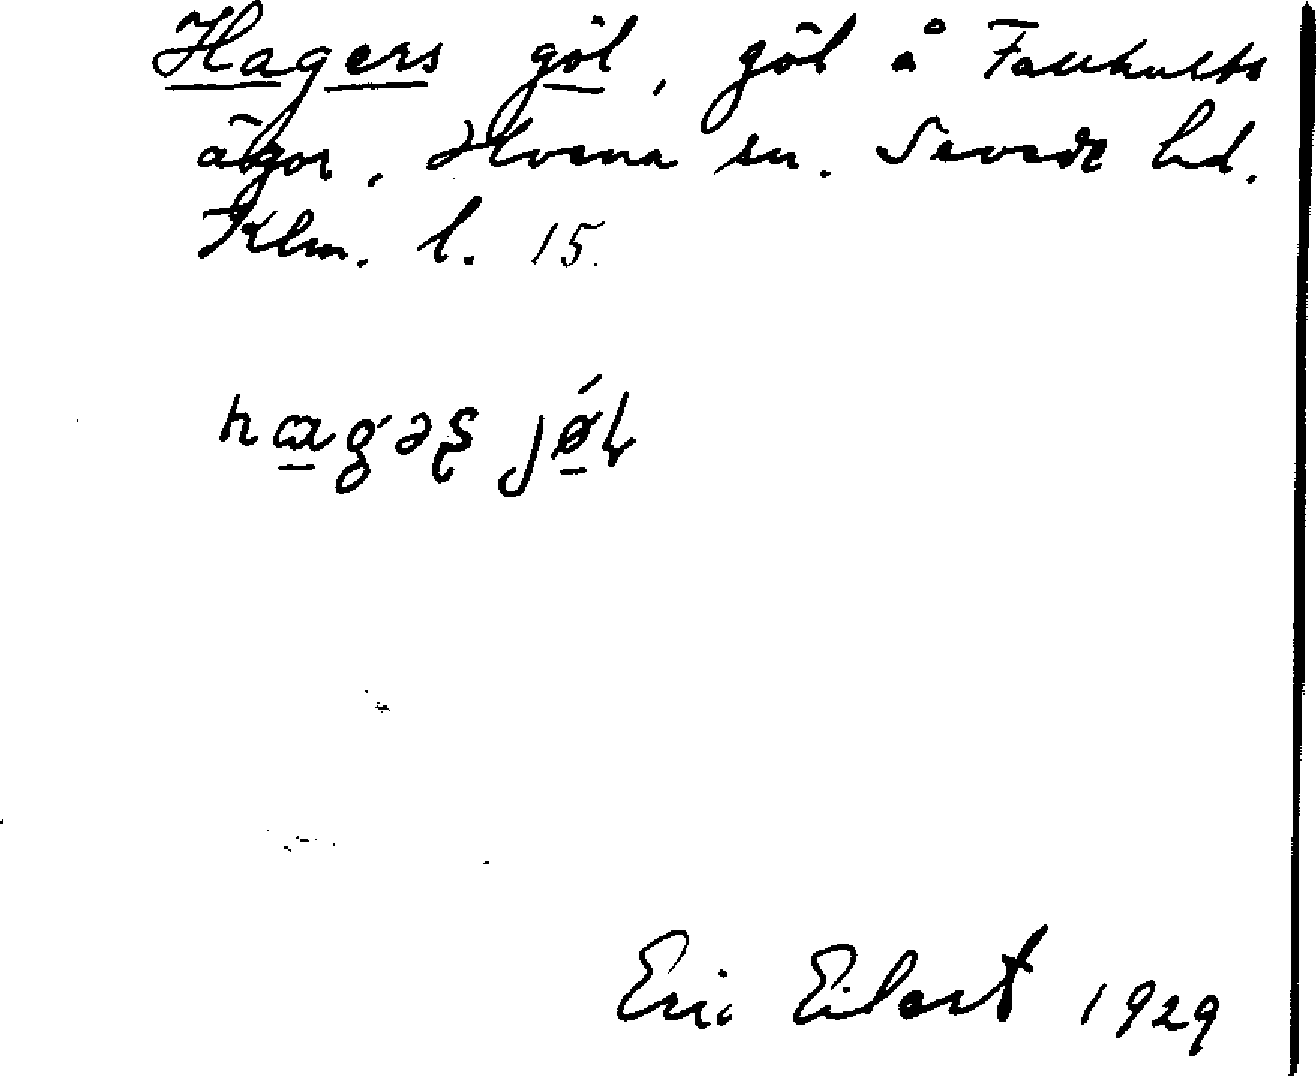 Hagers göl, göl å Fallhults
ägor, Alvena sn. Sevede hd.
Klm. l. 15.
Eric Eilert 1929